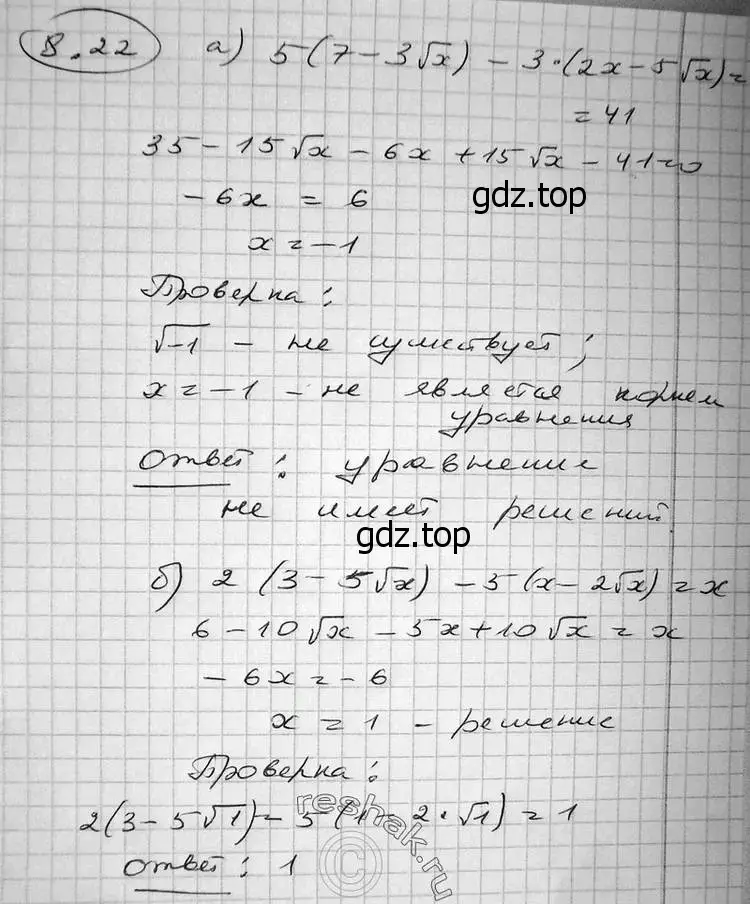 8.22 а) 5(7 - 3√x) - 3·(2x - 5√x) =
= 41
35 - 15√x - 6x + 15√x - 41 = 0
- 6x = 6
gdz.top
x = -1
Проверка:
√-1 - не существует;
x = -1 - не является корнем
уравнения
Ответ: уравнение
не имеет решений
gdz.top
б) 2 (3 - 5√x) - 5(x - 2√x) = x
6 - 10√x - 5x + 10√x = x
- 6x = -6
x = 1 - решение
Проверка:
2(3 - 5√1) - 5(1 - 2·√1) = 1
reshak.ru
©
Ответ: 1